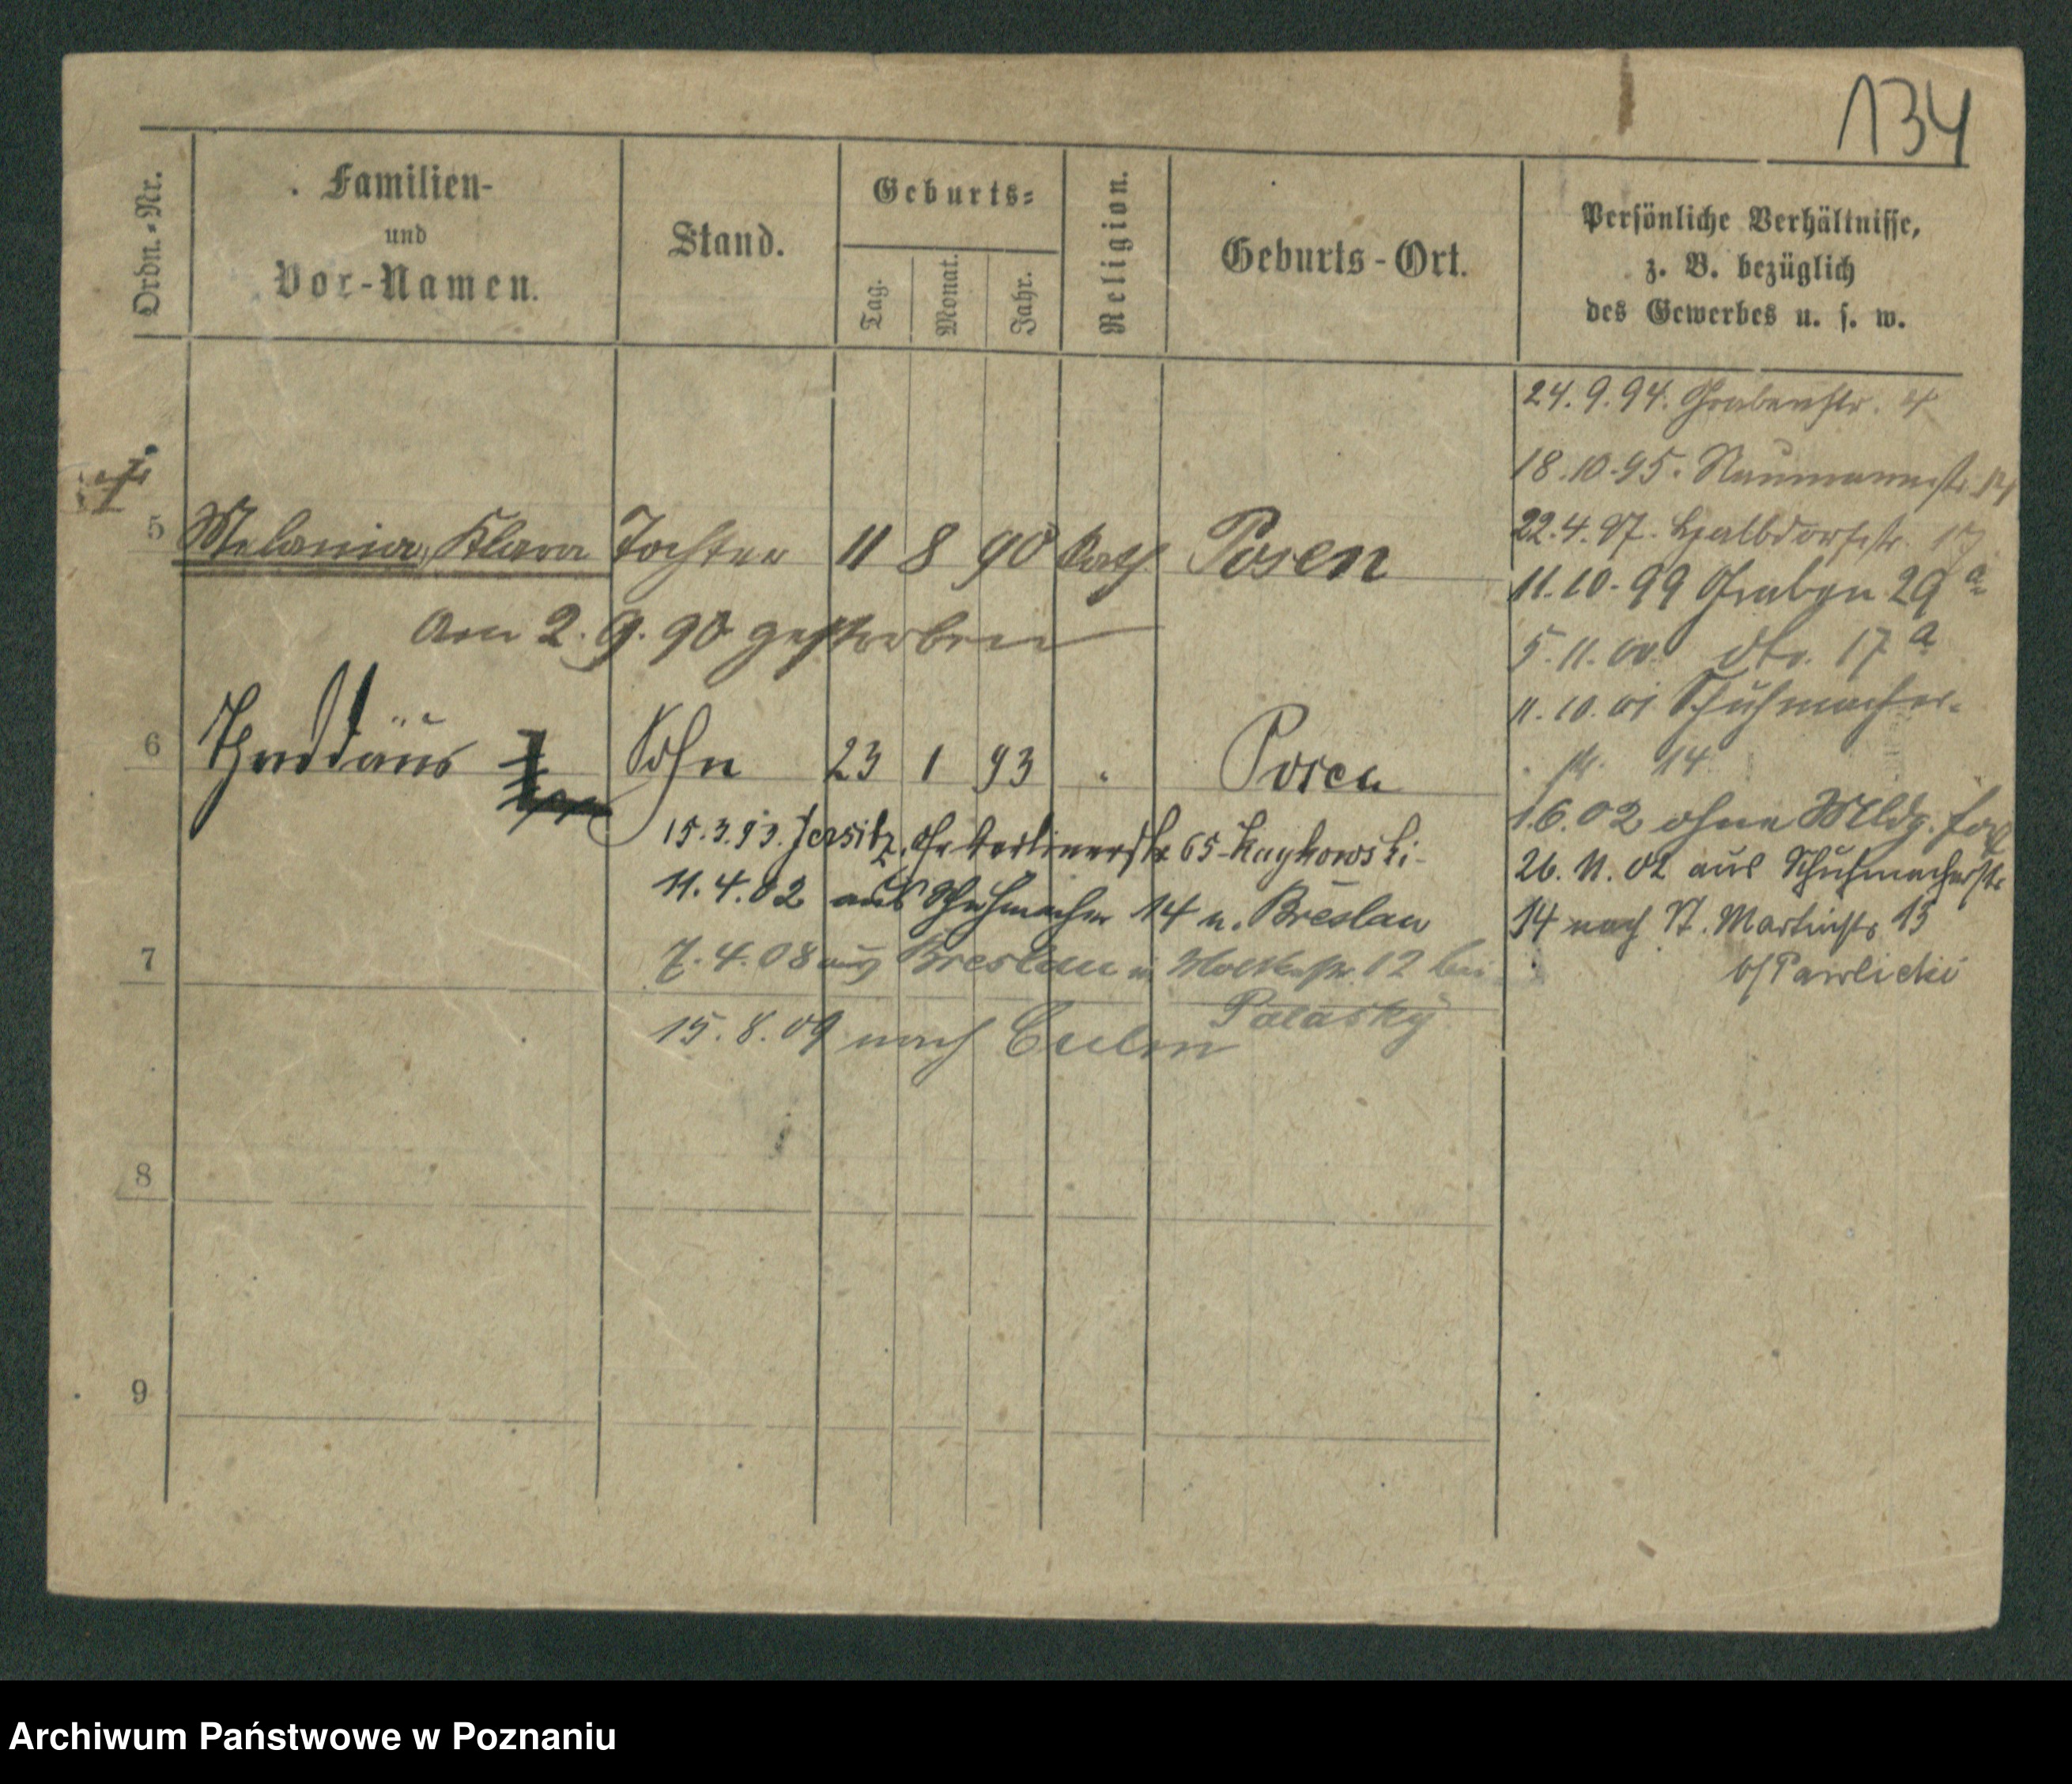 134
Ordn.-Nr.
Familien-
und
Vor-Namen.
Stand.
Geburts-
Tag.
Monat.
Jahr.
Religion.
Geburts-Ort.
Persönliche Verhältnisse,
z. B. bezüglich
des Gewerbes u. s. w.
24. 9. 94. Grabenstr. 4
18. 10. 95. Naumannstr.
22. 4. 97. Halbdorfstr. 17
11. 10. 99 Graben 29 a
5. 11. 00. dto. 17 a
11. 10. 01 Schuhmacher-
str. 14
1. 6. 02 ohne Mldg. fort
26. 11. 02 aus Schuhmacherstr
14 nach St. Martinstr 15
b/ Pawlicki
5 Melania, Klara Tochter 11 8 90 kath Posen
Am 2. 9. 90 gestorben
6 Thaddäus Sohn 23 1 93 " Posen
15. 3. 93. Jersitz, Gr Berlinerstr 65
11. 4. 02 aus Schuhmacher 14 n. Breslau
7 7. 4. 08 aus Breslau n. 12 bei
Palasky
15. 8. 09 nach Culm
8
9
Archiwum Państwowe w Poznaniu